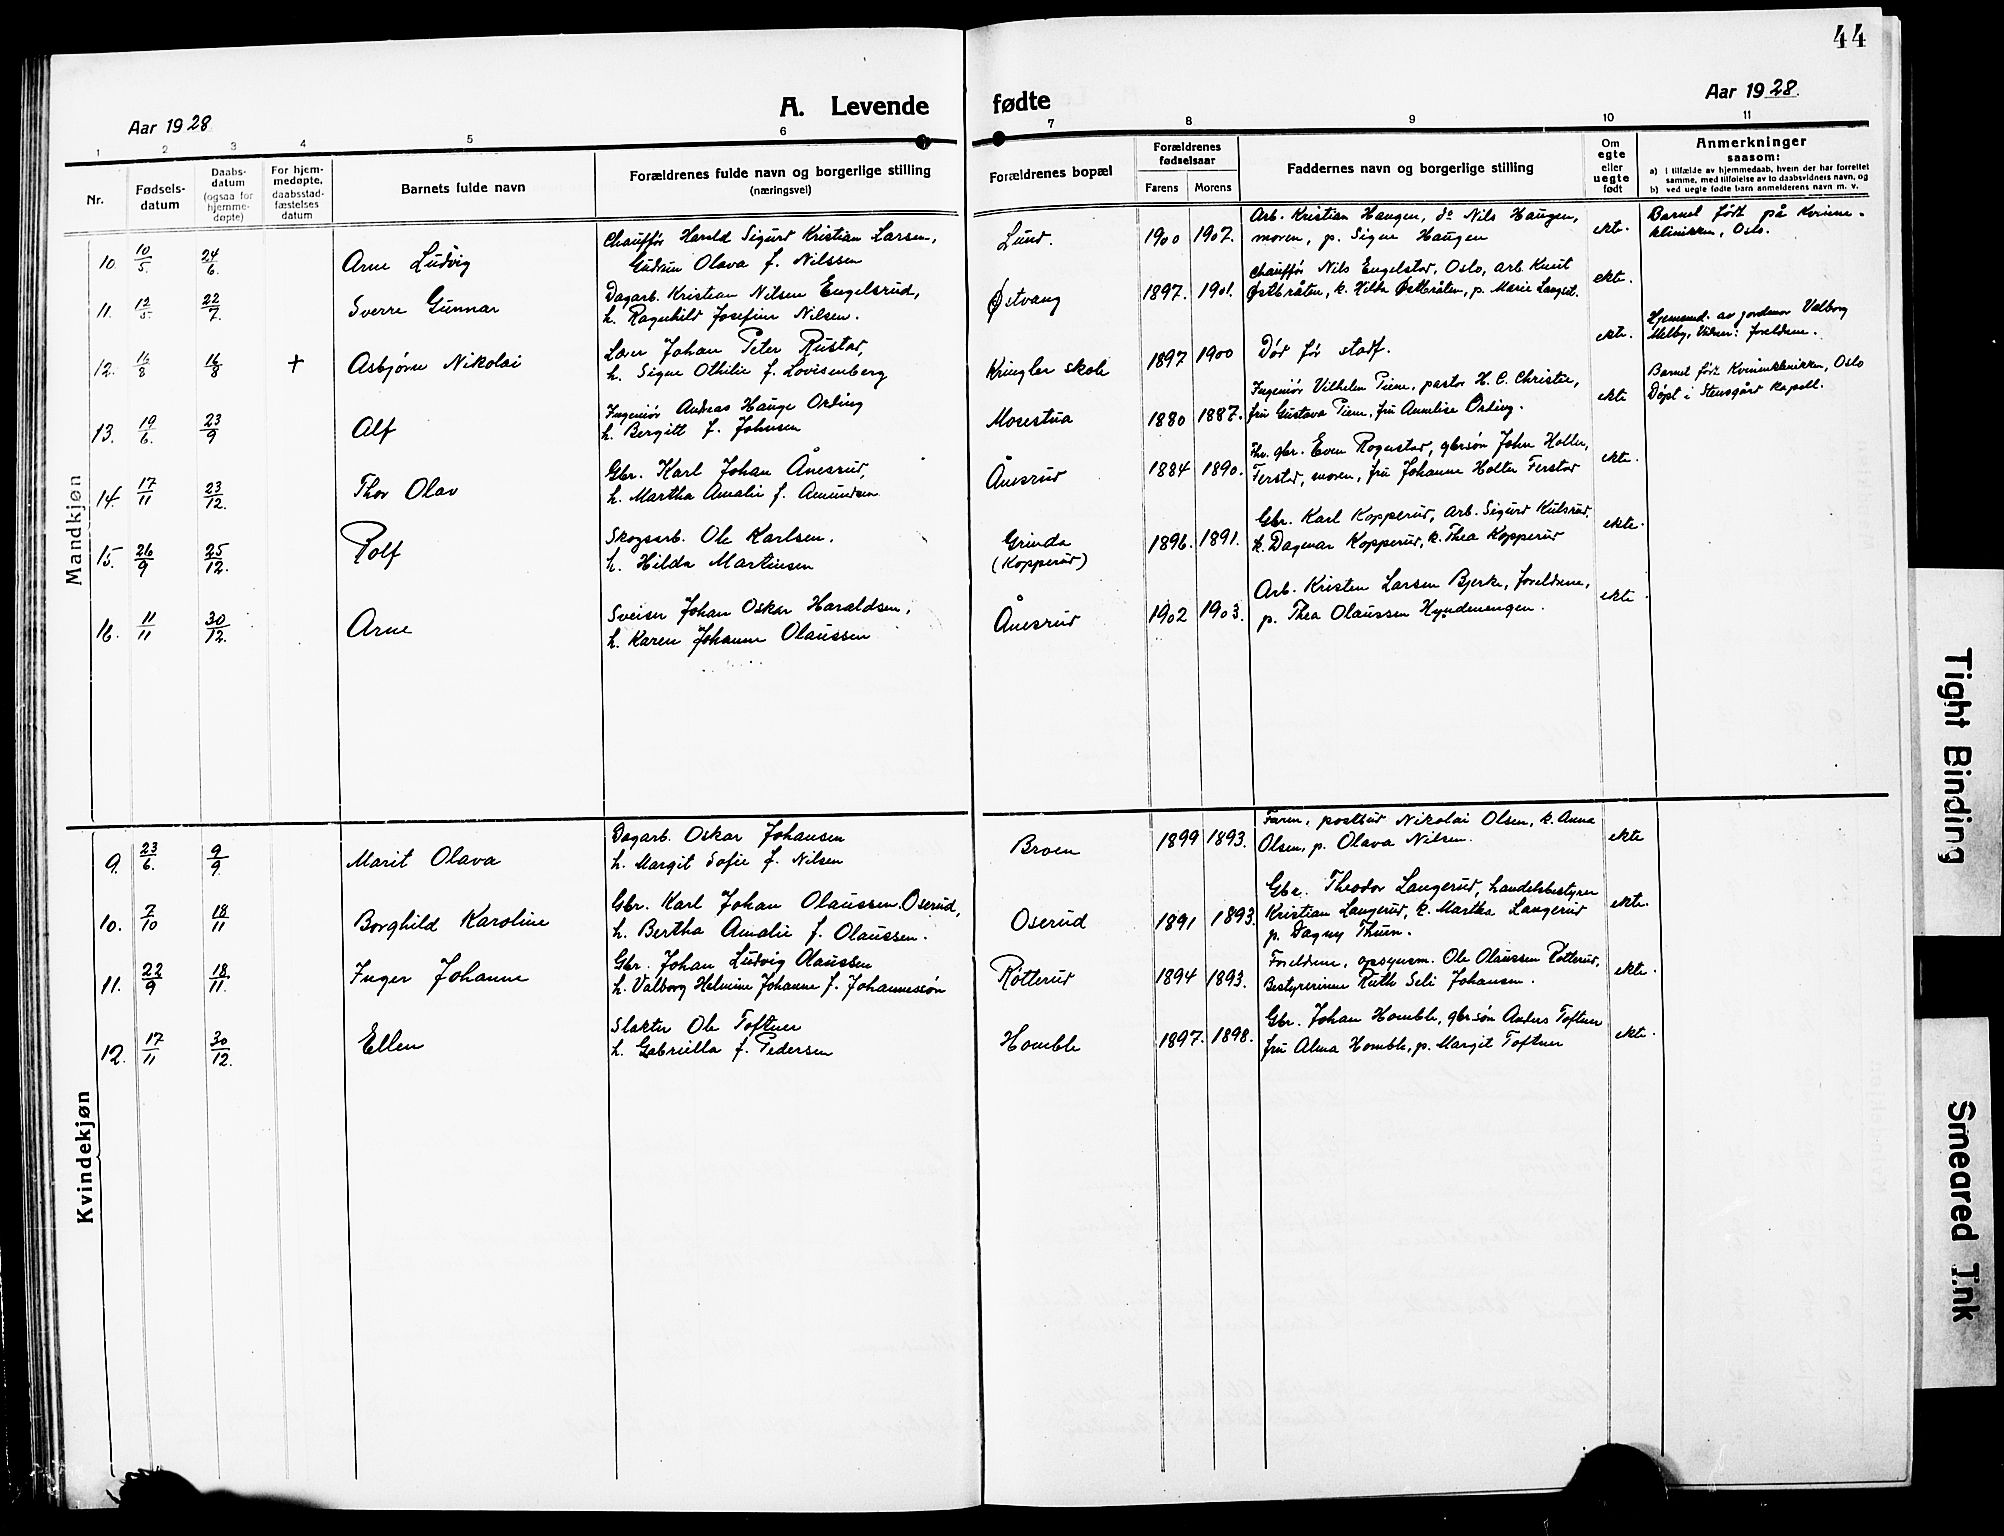 44
Aar 1928
A. Levende
fødte
Aar 1928.
1 2 3 4 5 6 7 8 9 10 11
Nr.
Fødsels-
datum
Daabs-
datum
(ogsaa for
hjemme-
døpte)
For hjem-
medøpte,
daabsstad-
fæstelses
datum
Barnets fulde navn
Forældrenes fulde navn og borgerlige stilling
(næringsvei)
Forældrenes bopæl
Forældrenes
fødselsaar
Farens
Morens
Faddernes navn og borgerlige stilling
Om
egte
eller
uegte
født
Anmerkninger
saasom:
a) i tilfælde av hjemmedaab, hvem der har forrettet
samme, med tilføielse av to daabsvidners navn, og
b) ved uegte fødte barn anmelderens navn m. v.
Mandkjøn
10. 10/5. 24/6. Arne Ludvig
Chauffør Harald Sigurd Kristian Larsen,
Gudrun Olava f. Nilssen
Lund. 1900 1907.
Arb. Kristian Haugen, do Nils Haugen,
moren, p. Signe Haugen
ekte.
Barnet født på Kvinne-
klinikken, Oslo.
11. 12/5. 22/7 Sverre Gunnar
Dagarb. Kristian Nilsen Engelsrud,
h. Ragnhild Josefine Nilsen.
Østvang 1897. 1901.
Chauffør Nils Engelstad, Oslo, arb. Knut
Østbråten, k. Hilda Østbråten, p. Marie Langset.
ekte.
12. 16/8 16/8 + Asbjørn Nikolai
Lærer Johan Peter Rustad,
h. Signe Othilie f. Lovisenberg
Kringler skole 1897 1900
Død før stadf.
ekte.
Hjemmed. av jordmor Valborg
Melby, Vidner: foreldrene.
13. 19/6. 23/9 Alf
Ingeniør Andreas Hauge Ording
h. Bergitt f. Johnsen
Mosestua 1880 1887.
Ingeniør Vilhelm Piene, pastor H. C. Christie,
fru Gustava Piene, fru Annelise Ording.
ekte
Barnet født Kvinneklinikken, Oslo
Døpt i Stensgård kapell.
14. 17/11 23/12. Thor Olav
Gbr. Karl Johan Ånesrud,
h. Martha Amalie f. Amundsen
Ånesrud 1884 1890.
Fhv. gbr. Even Rogerstad, gbrsøn John Holter,
Ferstad, moren, fru Johanne Holter Ferstad
ekte.
15. 26/9 25/12. Rolf
Skogsarb. Ole Karlsen.
h. Hilda Martinsen
Grinda
(Kopperud)
1896. 1891.
Gbr. Karl Kopperud, arb. Sigurd Kulsrud,
k. Dagmar Kopperud, k. Thea Kopperud
ekte.
16. 11/11 30/12. Arne
Sveiser Johan Oskar Haraldsen,
h. Karen Johanne Olaussen
Ånesrud 1902 1903.
Arb. Kristen Larsen Bjerke, foreldrene,
p. Thea Olaussen Hyndenengen.
ekte.
Kvindekjøn
9. 23/6. 9/9. Marit Olava
Dagarb. Oskar Johansen
h. Margit Sofie f. Nilsen
Broen 1899 1893.
Faren, postbud Nikolai Olsen, k. Anna
Olsen, p. Olava Nilsen.
ekte
10. 7/10 18/11 Borghild Karoline
Gbr. Karl Johan Olaussen Oserud,
h. Bertha Amalie f. Olaussen.
Oserud 1891 1893.
Gbr. Theodor Langerud, handelsbestyrer
Kristian Langerud, k. Martha Langerud
p. Dagny Thurn.
ekte.
11. 22/9 18/11. Inger Johanne
Gbr. Johan Ludvig Olaussen
h. Valborg Helmine Johanne f. Johannessøn
Røtterud 1894 1893.
Foreldrene, opsynsm. Ole Olaussen Røtterud,
Bestyrerinne Ruth Seli Johansen.
ekte.
12. 17/11 30/12. Ellen
Slakter Ole Toftner
h. Gabriella f. Pedersen
Homble 1897. 1898.
Gbr. Johan Homble, gbrsøn Anders Toftner
fru Alma Homble, p. Margit Toftner
ekte.
Tight Binding
Smeared Ink